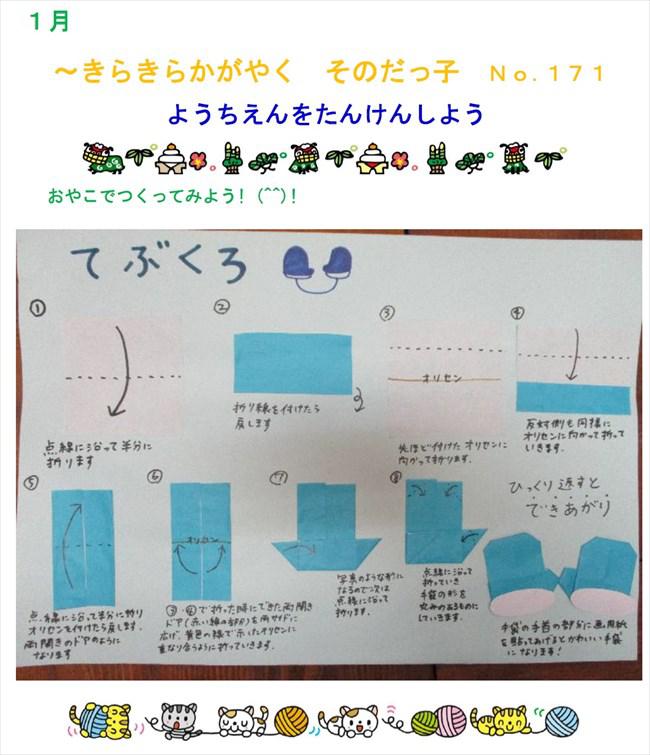 １月
～きらきらかがやく　そのだっ子　Ｎｏ.１７１
ようちえんをたんけんしよう
おやこでつくってみよう! (^^)!
てぶくろ
①
点線に沿って半分に
折ります
②
折り線を付けたら
戻します
③
オリセン
先ほど付けたオリセンに
向かって折ります。
④
反対側も同様に
オリセンに向かって折って
いきます。
⑤
点線に沿って半分に折り
オリセンを付けたら戻します。
両開きのドアのように
なります
⑥
オリセン
③・④で折った時にできた両開き
ドア(赤い線の部分)を両サイドに
広げ、黄色の線で示したオリセンに
重なり合うように折っていきます。
⑦
写真のような形に
なるので次は
点線に沿って
折ります。
⑧
点線に沿って
折っていき
手袋の形を
丸みのあるものに
していきます。
ひっくり返すと
できあがり
手袋の手首の部分に画用紙
を貼ってあげるとかわいい手袋
になります!